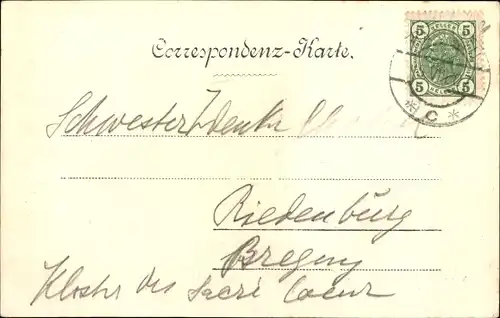 5 HELLER 5
Correspondenz-Karte.
5 HELLER 5
* C *
Schwester Zdenka
Riedenburg
Bregenz
Kloster des Sacré Coeur